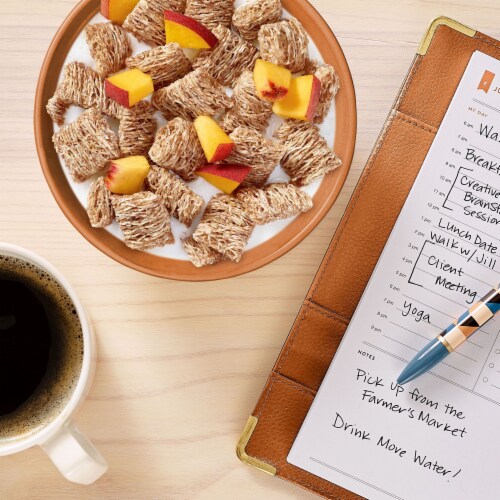 MY DAY
Was
Breakf
Creative
Brainst
Session
Lunch Date
Walk w/ Jill
Client
Meeting
Yoga
NOTES
Pick up from the
Farmer's Market
Drink More Water!